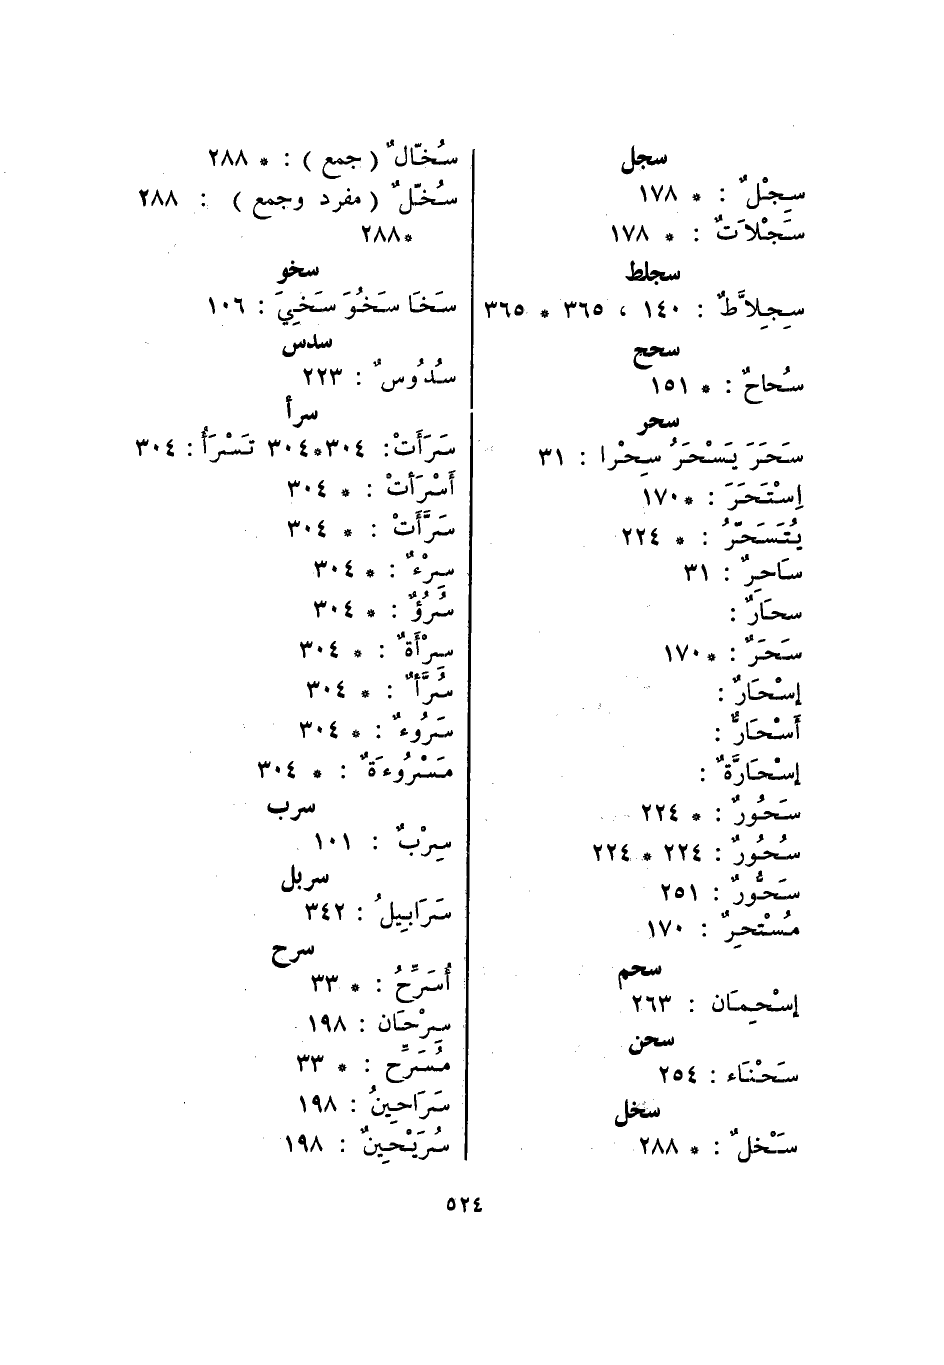 سجل
سِجْلٌ : * ١٧٨
سَجْلَاتٌ : * ١٧٨
سجلط
سِجِلاَّطٌ : ١٤٠ ، ٣٦٥ * ٣٦٥
سحح
سُحاحٌ : * ١٥١
سحر
سَحَرَ يَسْحَرُ سِحْرا : ٣١
اِسْتَحَرَ : *١٧٠
يُتَسَحَّرُ : * ٢٢٤
سَاحِرٌ : ٣١
سحَارٌ :
سَحَرٌ : *١٧٠
إسْحَارٌ :
أَسْحَارٌّ :
إسْحَارَّةٌ :
سَحُورٌ : * ٢٢٤
سُحُورٌ : ٢٢٤ * ٢٢٤
سَحُّورٌ : ٢٥١
مُسْتحِرٌ : ١٧٠
سحم
إسْحِمَان : ٢٦٣
سحن
سَحْنَاء : ٢٥٤
سخل
سَخْلٌ : * ٢٨٨
سُخّالٌ ( جمع ) : * ٢٨٨
سُخّلٌ ( مفرد وجمع ) : ٢٨٨
*٢٨٨
سخو
سَخَا سَخُوَ سَخِيَ : ١٠٦
سدس
سُدُوسٌ : ٢٢٣
سرأ
سَرَأَتْ: ٣٠٤*٣٠٤ تَسْرَأُ : ٣٠٤
أَسْرَأتْ : * ٣٠٤
سَرَّأَتْ : * ٣٠٤
سِرْءٌ : * ٣٠٤
سُرُؤٌ : * ٣٠٤
سرْأَةٌ : * ٣٠٤
سُرَّأٌ : * ٣٠٤
سَرُوءٌ : * ٣٠٤
مَسْرُوءَةٌ : * ٣٠٤
سرب
سِرْبٌ : ١٠١
سربل
سَرَابِيلُ : ٣٤٢
سرح
أُسَرِّحُ : * ٣٣
سِرْحَان : ١٩٨
مُسَرِّح : * ٣٣
سَرَاحِينُ : ١٩٨
سُرَيْحِينٌ : ١٩٨
٥٢٤